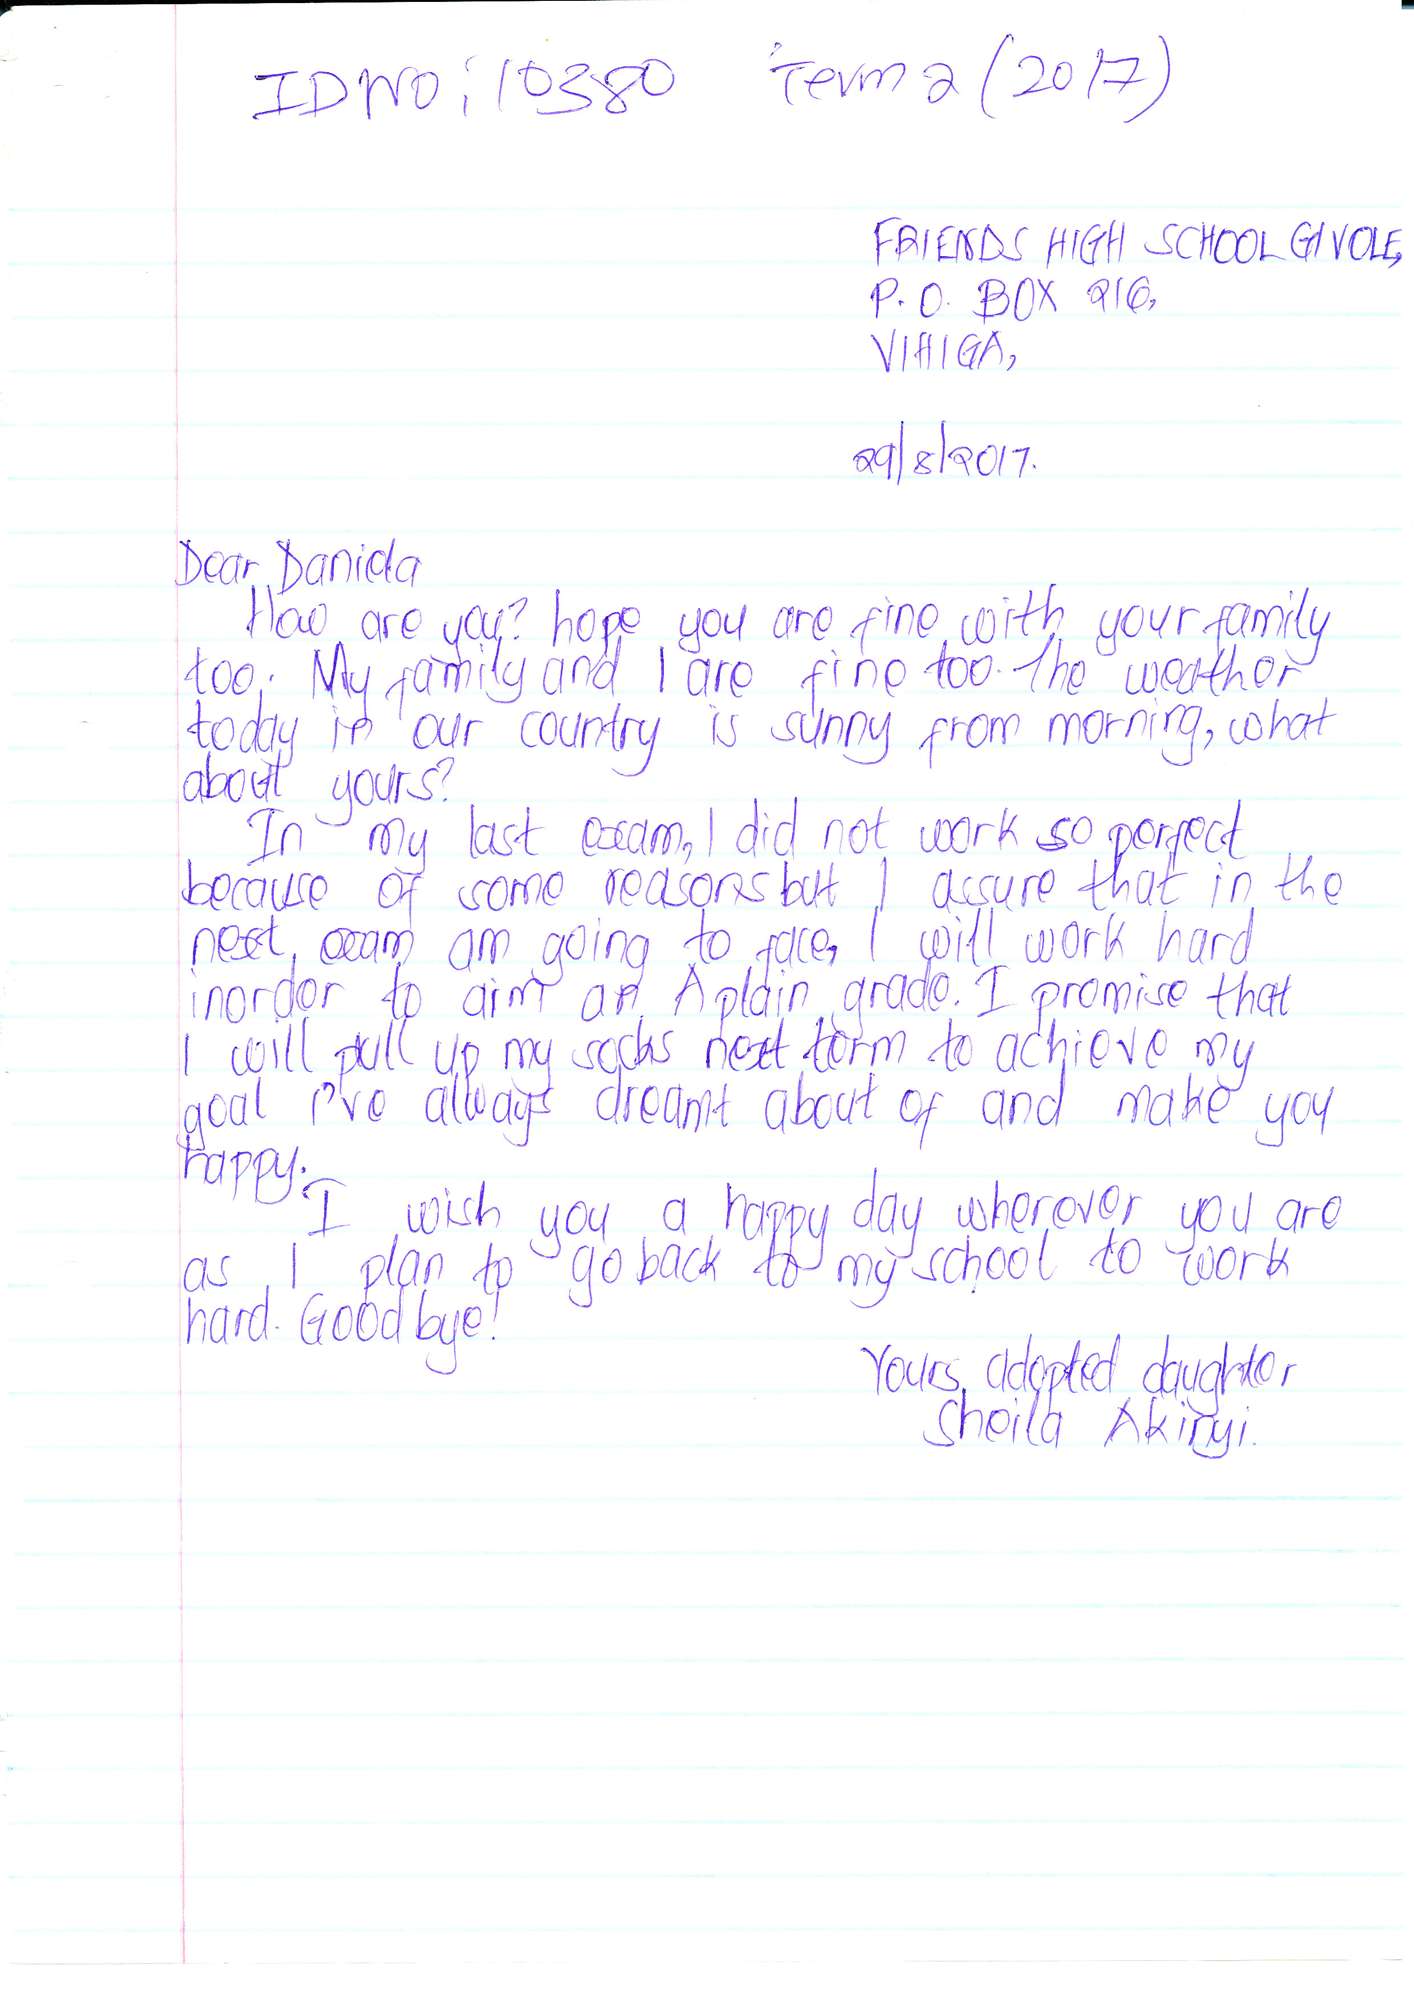 ID NO: 10380 Term 2 (2017)
FRIENDS HIGH SCHOOL GIVOLE,
P.O. BOX 216,
VIHIGA,
29/8/2017.
Dear Daniela
How are you? hope you are fine with your family
too. My family and I are fine too. The weather
today in our country is sunny from morning, what
about yours?
In my last exam, I did not work so perfect
because of some reasons but I assure that in the
next exam am going to face, I will work hard
inorder to aim an A plain grade. I promise that
I will pull up my socks next term to achieve my
goal I've always dreamt about of and make you
happy.
I wish you a happy day wherever you are
as I plan to go back to my school to work
hard. Good bye!
Yours adopted daughter
Sheila Akinyi.